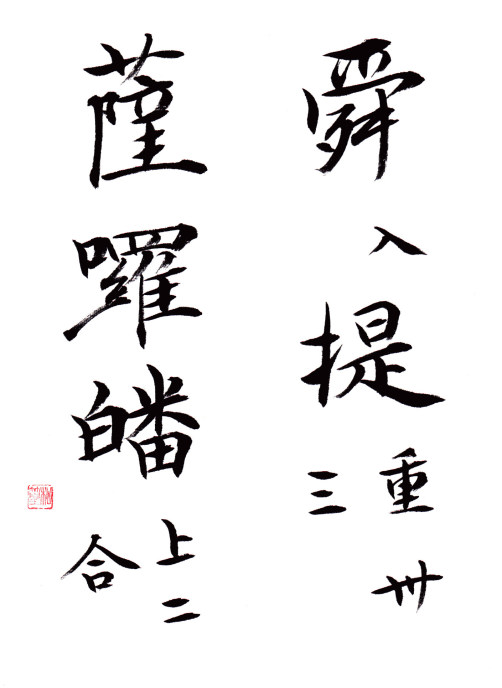 舜入提重卅三
薩囉皤上二合